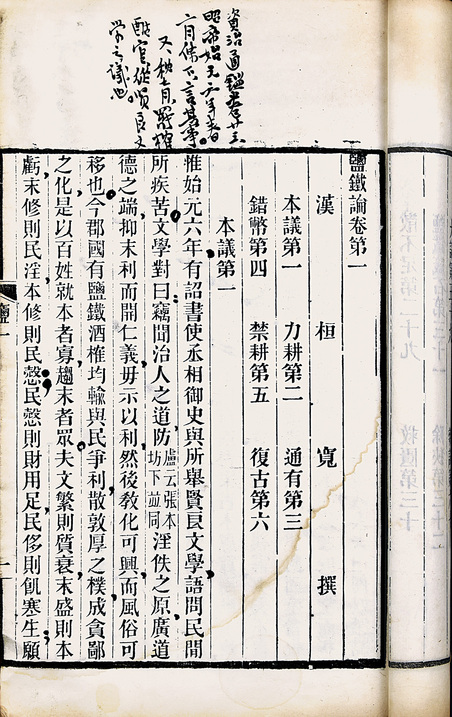 資治通鑑卷廿三
昭帝始元六年春
育傳下言其事
又杜育罷榷
酤官從賢良文
學之議也
鹽鐵論卷第一
漢 桓 寬 撰
本議第一 力耕第二 通有第三
錯幣第四 禁耕第五 復古第六
本議第一
惟始元六年有詔書使丞相御史與所舉賢良文學語問民間
所疾苦文學對曰竊聞治人之道防盧云張本坊下並同淫佚之原廣道
德之端抑末利而開仁義毋示以利然後敎化可興而風俗可
移也今郡國有鹽鐵酒榷均輸與民爭利散敦厚之樸成貪鄙
之化是以百姓就本者寡趨末者眾夫文繁則質衰末盛則本
虧末修則民淫本修則民愨民愨則財用足民侈則飢寒生願
鹽一
一
散不足第二十九
救匱第三十